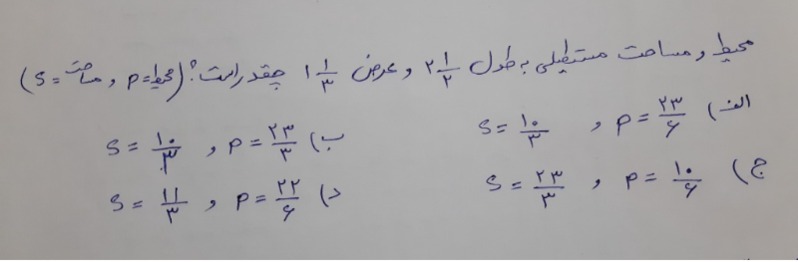 محیط و مساحت مستطیلی به طول ۲ ۱/۲ و عرض ۱ ۱/۳ چقدر است؟ (محیط=P و مساحت=S)
الف) P = ۲۳/۶ , S = ۱۰/۳
ب) P = ۲۳/۳ , S = ۱۰/۳
ج) P = ۱۰/۶ , S = ۲۳/۳
د) P = ۲۲/۶ , S = ۱۱/۳